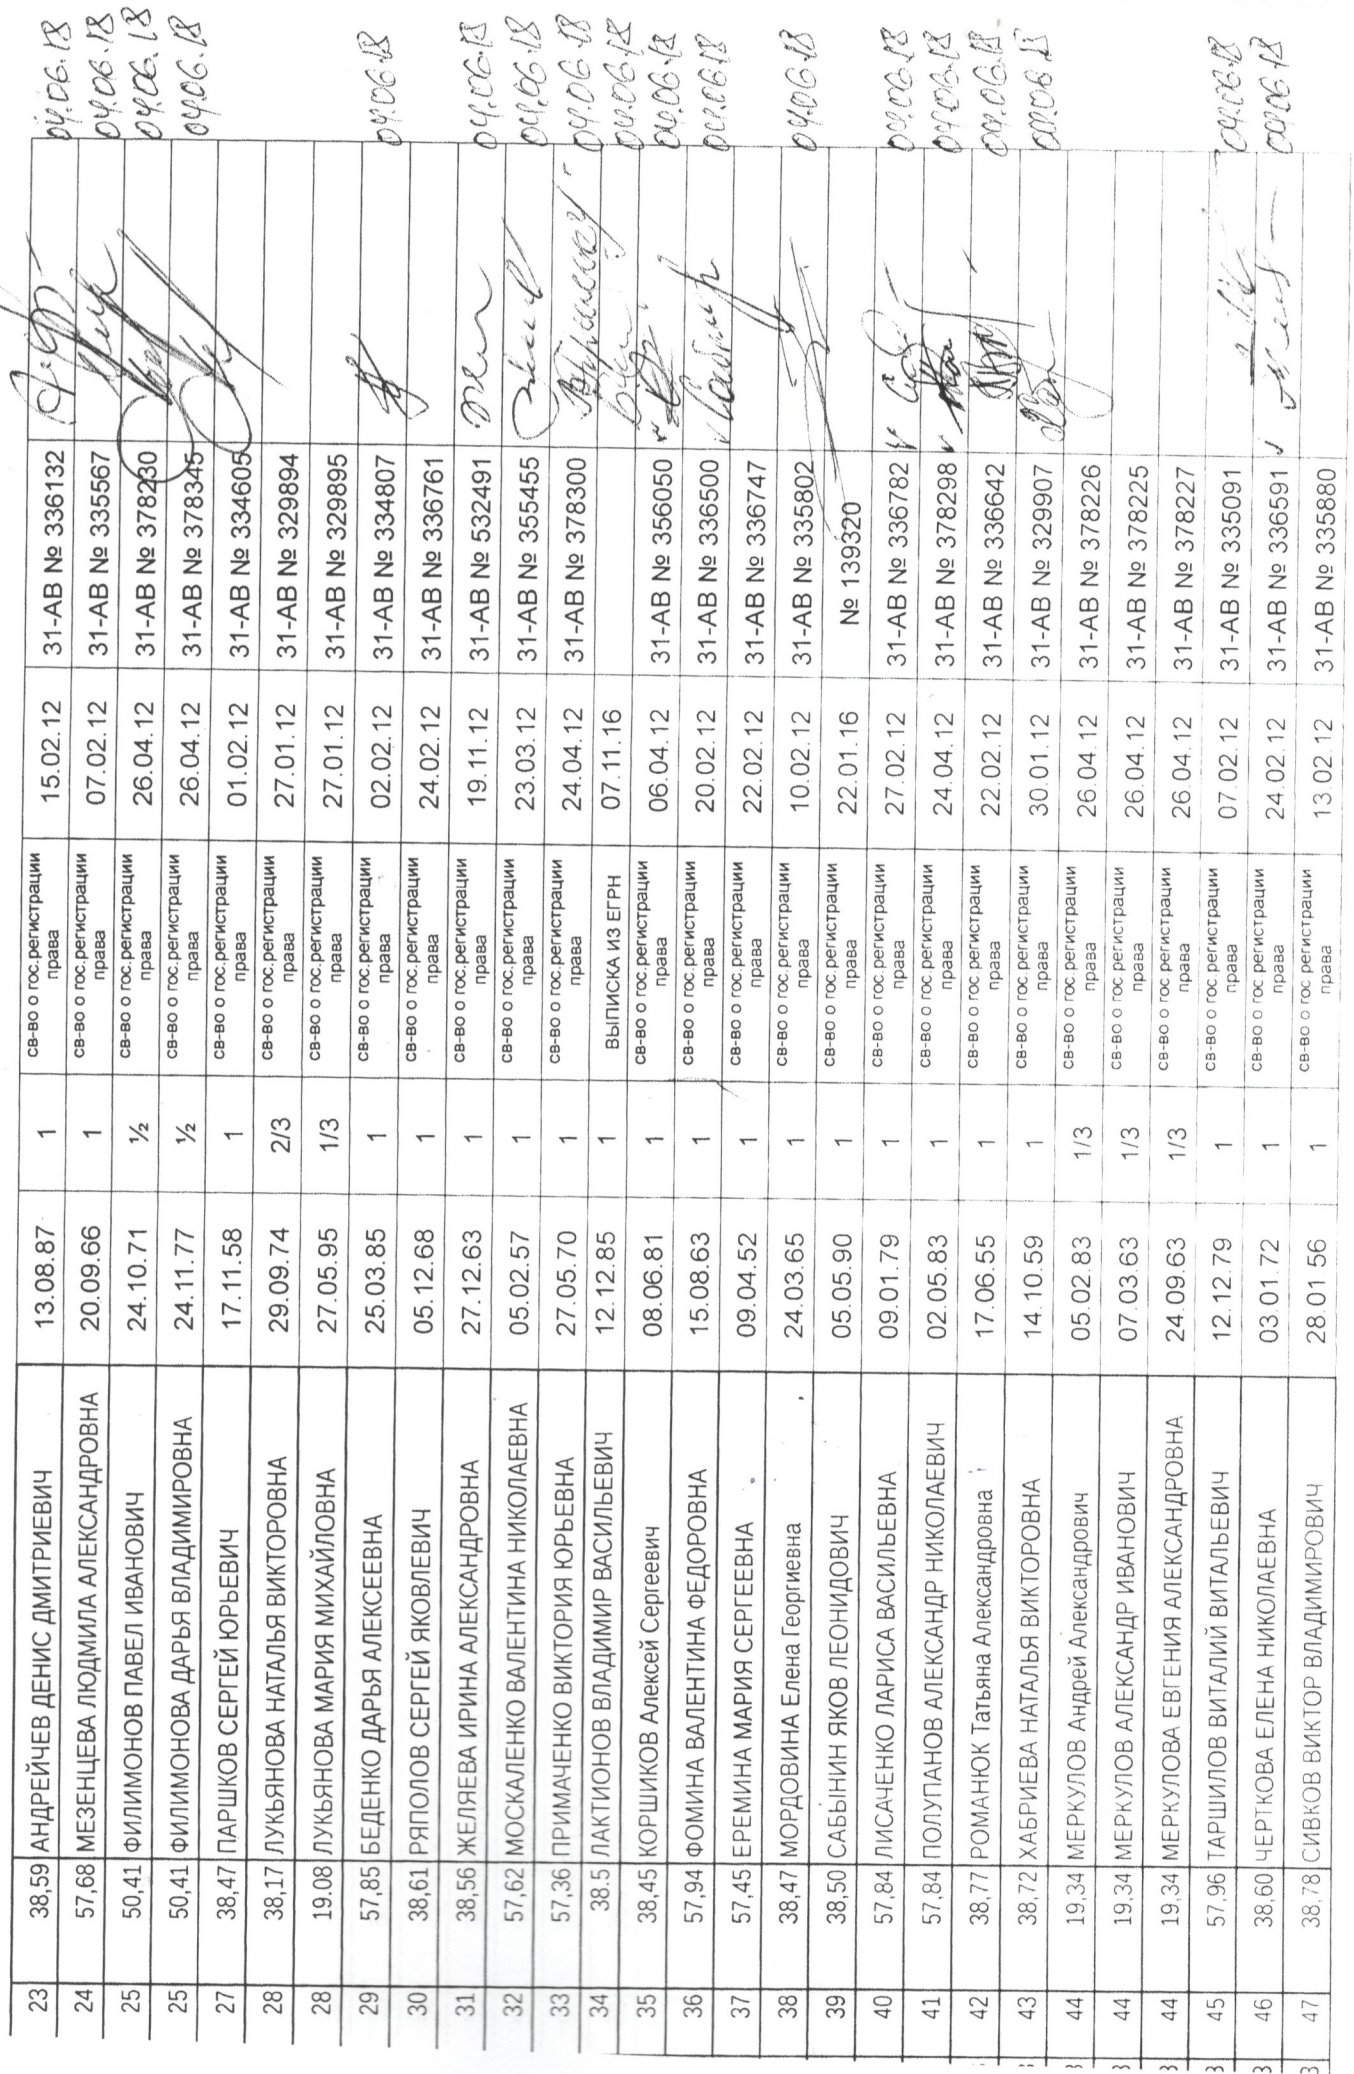 23 38,59 АНДРЕЙЧЕВ ДЕНИС ДМИТРИЕВИЧ 13.08.87 1 св-во о гос.регистрации права 15.02.12 31-АВ № 336132 04.06.18
24 57,68 МЕЗЕНЦЕВА ЛЮДМИЛА АЛЕКСАНДРОВНА 20.09.66 1 св-во о гос.регистрации права 07.02.12 31-АВ № 335567 04.06.18
25 50,41 ФИЛИМОНОВ ПАВЕЛ ИВАНОВИЧ 24.10.71 ½ св-во о гос.регистрации права 26.04.12 31-АВ № 378230 04.06.18
25 50,41 ФИЛИМОНОВА ДАРЬЯ ВЛАДИМИРОВНА 24.11.77 ½ св-во о гос.регистрации права 26.04.12 31-АВ № 378345 04.06.18
27 38,47 ПАРШКОВ СЕРГЕЙ ЮРЬЕВИЧ 17.11.58 1 св-во о гос.регистрации права 01.02.12 31-АВ № 334605
28 38,17 ЛУКЬЯНОВА НАТАЛЬЯ ВИКТОРОВНА 29.09.74 2/3 св-во о гос.регистрации права 27.01.12 31-АВ № 329894
28 19.08 ЛУКЬЯНОВА МАРИЯ МИХАЙЛОВНА 27.05.95 1/3 св-во о гос.регистрации права 27.01.12 31-АВ № 329895
29 57,85 БЕДЕНКО ДАРЬЯ АЛЕКСЕЕВНА 25.03.85 1 св-во о гос.регистрации права 02.02.12 31-АВ № 334807 04.06.18
30 38,61 РЯПОЛОВ СЕРГЕЙ ЯКОВЛЕВИЧ 05.12.68 1 св-во о гос.регистрации права 24.02.12 31-АВ № 336761
31 38,56 ЖЕЛЯЕВА ИРИНА АЛЕКСАНДРОВНА 27.12.63 1 св-во о гос.регистрации права 19.11.12 31-АВ № 532491 04.06.18
32 57,62 МОСКАЛЕНКО ВАЛЕНТИНА НИКОЛАЕВНА 05.02.57 1 св-во о гос.регистрации права 23.03.12 31-АВ № 355455 04.06.18
33 57,36 ПРИМАЧЕНКО ВИКТОРИЯ ЮРЬЕВНА 27.05.70 1 св-во о гос.регистрации права 24.04.12 31-АВ № 378300 04.06.18
34 38.5 ЛАКТИОНОВ ВЛАДИМИР ВАСИЛЬЕВИЧ 12.12.85 1 ВЫПИСКА ИЗ ЕГРН 07.11.16 04.06.18
35 38,45 КОРШИКОВ Алексей Сергеевич 08.06.81 1 св-во о гос.регистрации права 06.04.12 31-АВ № 356050 04.06.18
36 57,94 ФОМИНА ВАЛЕНТИНА ФЕДОРОВНА 15.08.63 1 св-во о гос.регистрации права 20.02.12 31-АВ № 336500 04.06.18
37 57,45 ЕРЕМИНА МАРИЯ СЕРГЕЕВНА 09.04.52 1 св-во о гос.регистрации права 22.02.12 31-АВ № 336747
38 38,47 МОРДОВИНА Елена Георгиевна 24.03.65 1 св-во о гос.регистрации права 10.02.12 31-АВ № 335802 04.06.18
39 38,50 САБЫНИН ЯКОВ ЛЕОНИДОВИЧ 05.05.90 1 св-во о гос.регистрации права 22.01.16 № 139320
40 57,84 ЛИСАЧЕНКО ЛАРИСА ВАСИЛЬЕВНА 09.01.79 1 св-во о гос.регистрации права 27.02.12 31-АВ № 336782 04.06.18
41 57,84 ПОЛУПАНОВ АЛЕКСАНДР НИКОЛАЕВИЧ 02.05.83 1 св-во о гос.регистрации права 24.04.12 31-АВ № 378298 04.06.18
42 38,77 РОМАНЮК Татьяна Александровна 17.06.55 1 св-во о гос.регистрации права 22.02.12 31-АВ № 336642 04.06.18
43 38,72 ХАБРИЕВА НАТАЛЬЯ ВИКТОРОВНА 14.10.59 1 св-во о гос.регистрации права 30.01.12 31-АВ № 329907 04.06.18
44 19,34 МЕРКУЛОВ Андрей Александрович 05.02.83 1/3 св-во о гос.регистрации права 26.04.12 31-АВ № 378226
44 19,34 МЕРКУЛОВ АЛЕКСАНДР ИВАНОВИЧ 07.03.63 1/3 св-во о гос.регистрации права 26.04.12 31-АВ № 378225
44 19,34 МЕРКУЛОВА ЕВГЕНИЯ АЛЕКСАНДРОВНА 24.09.63 1/3 св-во о гос.регистрации права 26.04.12 31-АВ № 378227
45 57,96 ТАРШИЛОВ ВИТАЛИЙ ВИТАЛЬЕВИЧ 12.12.79 1 св-во о гос.регистрации права 07.02.12 31-АВ № 335091 04.06.18
46 38,60 ЧЕРТКОВА ЕЛЕНА НИКОЛАЕВНА 03.01.72 1 св-во о гос.регистрации права 24.02.12 31-АВ № 336591 04.06.18
47 38,78 СИВКОВ ВИКТОР ВЛАДИМИРОВИЧ 28.01 56 1 св-во о гос.регистрации права 13.02.12 31-АВ № 335880